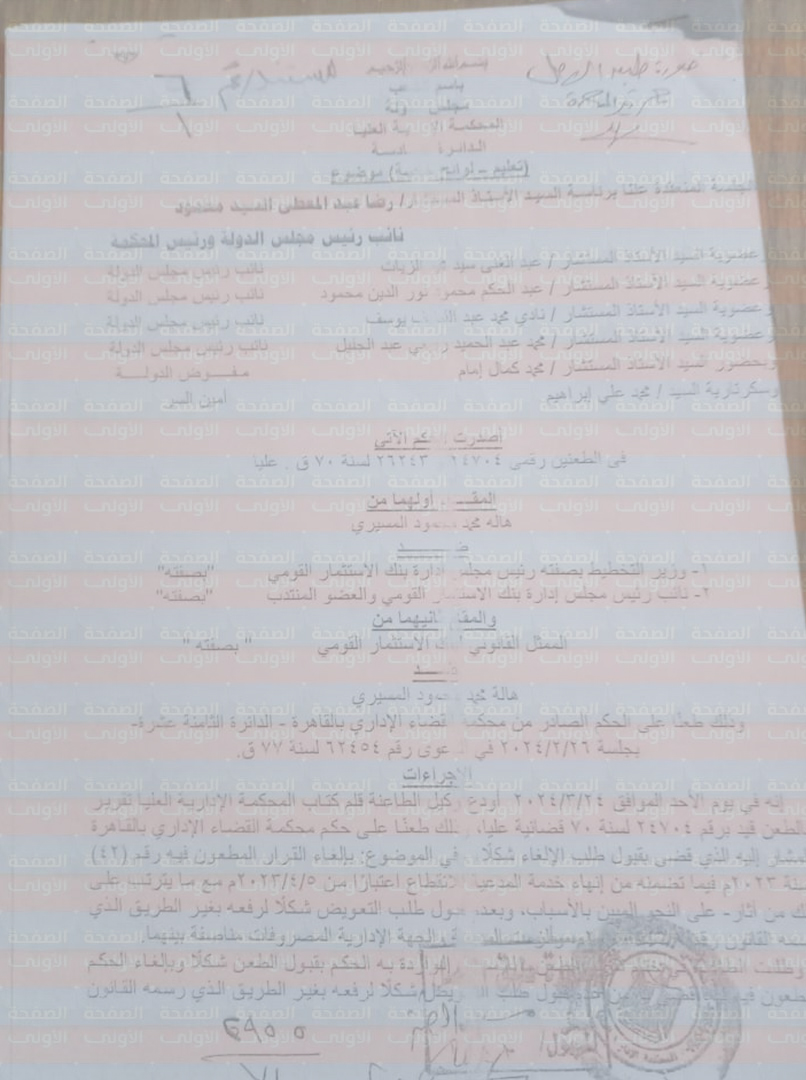 صورة طبق الاصل
مستند رقم ٦
بسم الله الرحمن الرحيم
باسم الشعب
مجلس الدولة
المحكمة الإدارية العليا
الدائرة
(تعليم – لوائح خاصة) موضوع
بالجلسة المنعقدة علنا برئاسة السيد الأستاذ المستشار/ رضا عبد المعطى السيد محمود
نائب رئيس مجلس الدولة ورئيس المحكمة
وعضوية السيد الأستاذ المستشار / عبد الغنى سيد الزيات نائب رئيس مجلس الدولة
وعضوية السيد الأستاذ المستشار / عبد الحكم محمود نور الدين محمود نائب رئيس مجلس الدولة
وعضوية السيد الأستاذ المستشار / نادي محمد عبد يوسف نائب رئيس مجلس الدولة
وعضوية السيد الأستاذ المستشار / محمد عبد الحميد عبد الجليل نائب رئيس مجلس الدولة
وبحضور السيد الأستاذ المستشار / محمد كمال إمام مفـــوض الدولـــة
وسكرتارية السيد / محمد علي إبراهيم أمين السر
أصدرت الحكم الآتي
فى الطعنين رقمى ٢٤٧٠٤ ، ٢٦٢٤٣ لسنة ٧٠ ق . عليا
المقـــــام أولهما من
هاله محمد محمود المسيري
ضـــــــد
١- وزير التخطيط بصفته رئيس مجلس إدارة بنك الاستثمار القومي "بصفته"
٢- نائب رئيس مجلس إدارة بنك الاستثمار القومي والعضو المنتدب "بصفته"
والمقام ثانيهما من
الممثل القانوني لبنك الاستثمار القومي " بصفته "
ضـــــد
هالة محمد محمود المسيري
وذلك طعنًا على الحكم الصادر من محكمة القضاء الإداري بالقاهرة - الدائرة الثامنة عشرة-
بجلسة ٢٠٢٤/٢/٢٦ في الدعوى رقم ٦٢٤٥٤ لسنة ٧٧ ق.
الإجراءات
إنه في يوم الأحد الموافق ٢٠٢٤/٣/٢٤ أودع وكيل الطاعنة قلم كتاب المحكمة الإدارية العليا تقرير
الطعن قيد برقم ٢٤٧٠٤ لسنة ٧٠ قضائية عليا، وذلك طعنًا على حكم محكمة القضاء الإداري بالقاهرة
المشار إليه الذي قضى بقبول طلب الإلغاء شكلًا وفي الموضوع: بإلغاء القرار المطعون فيه رقم (٤٢)
لسنة ٢٠٢٣م فيما تضمنه من إنهاء خدمة المدعية للانقطاع اعتبارًا من ٢٠٢٣/٤/٥م مع ما يترتب على
ذلك من آثار- على النحو المبين بالأسباب، وبعدم قبول طلب التعويض شكلًا لرفعه بغير الطريق الذي
رسمه القانون رقم الجهة الإدارية المصروفات مناصفة بينهما.
وطلبت الحكم بقبول الطعن شكلًا وبإلغاء الحكم
المطعون فيه شكلًا لرفعه بغير الطريق الذي رسمه القانون
٥٩٠٠
الصفحة الأولى